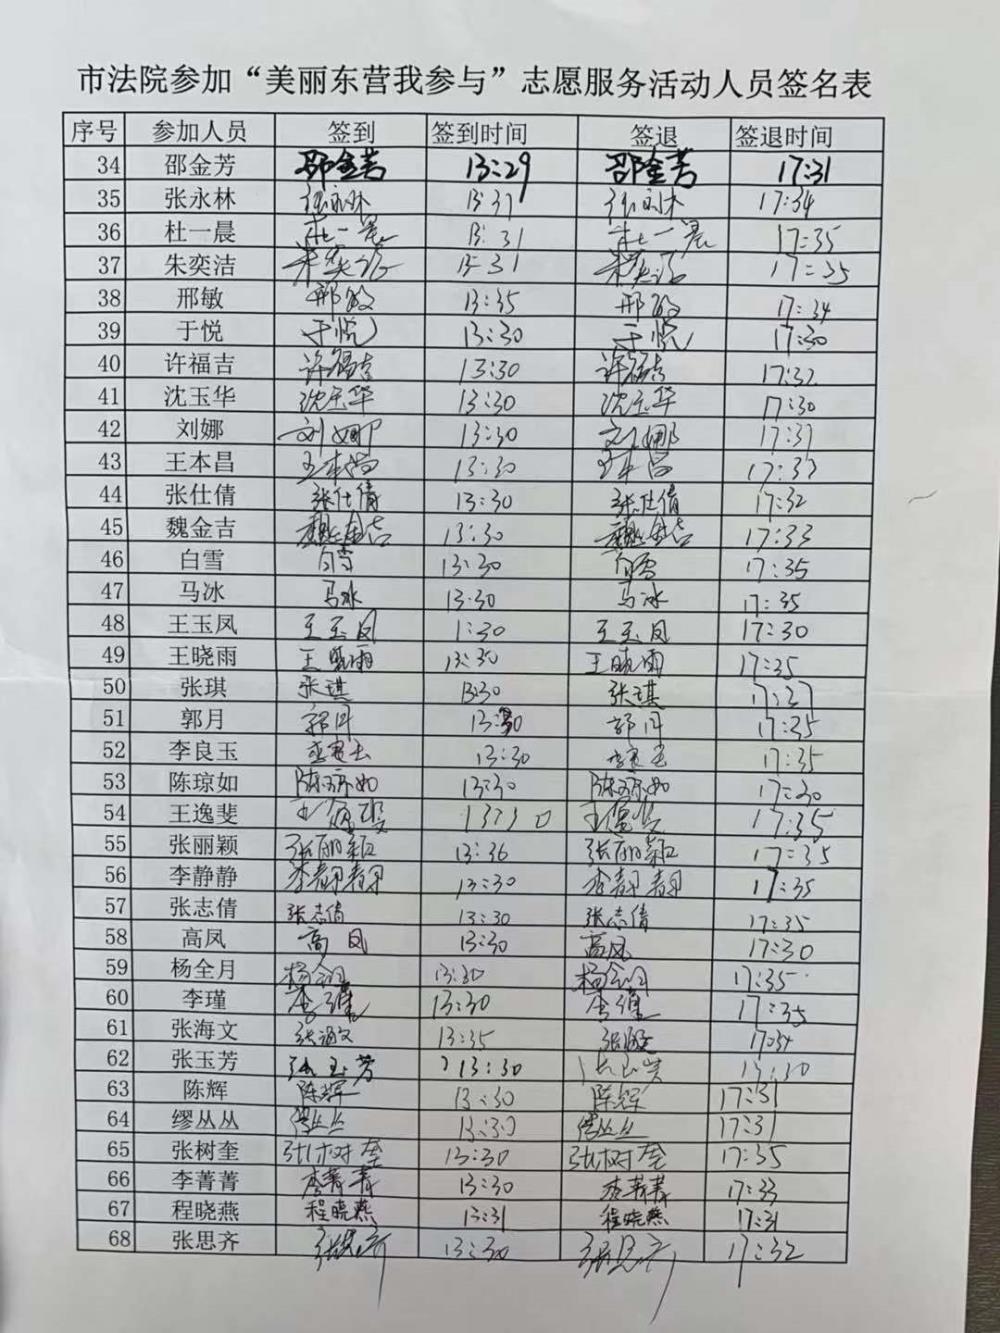 市法院参加“美丽东营我参与”志愿服务活动人员签名表
序号 参加人员 签到 签到时间 签退 签退时间
34 邵金芳 邵金芳 13:29 邵金芳 17:31
35 张永林 张永林 13:31 张永林 17:34
36 杜一晨 杜一晨 13:31 杜一晨 17:35
37 朱奕洁 朱奕洁 13:31 朱奕洁 17:35
38 邢敏 邢敏 13:35 邢敏 17:34
39 于悦 于悦 13:30 于悦 17:30
40 许福吉 许福吉 13:30 许福吉 17:32
41 沈玉华 沈玉华 13:30 沈玉华 17:30
42 刘娜 刘娜 13:30 刘娜 17:31
43 王本昌 王本昌 13:30 王本昌 17:33
44 张仕倩 张仕倩 13:30 张仕倩 17:32
45 魏金吉 魏金吉 13:30 魏金吉 17:33
46 白雪 白雪 13:30 白雪 17:35
47 马冰 马冰 13:30 马冰 17:35
48 王玉凤 王玉凤 1:30 王玉凤 17:30
49 王晓雨 王晓雨 13:30 王晓雨 17:35
50 张琪 张琪 13:30 张琪 17:37
51 郭月 郭月 13:30 郭月 17:35
52 李良玉 李良玉 13:30 李良玉 17:35
53 陈琼如 陈琼如 13:30 陈琼如 17:30
54 王逸斐 王逸斐 13:30 王逸斐 17:35
55 张丽颖 张丽颖 13:36 张丽颖 17:35
56 李静静 李静静 13:30 李静静 17:35
57 张志倩 张志倩 13:30 张志倩 17:35
58 高凤 高凤 13:30 高凤 17:30
59 杨全月 杨全月 13:30 杨全月 17:35
60 李瑾 李瑾 13:30 李瑾 17:35
61 张海文 张海文 13:35 张海文 17:34
62 张玉芳 张玉芳 13:30 张玉芳
63 陈辉 陈辉 13:30 陈辉 17:31
64 缪丛丛 缪丛丛 13:30 缪丛丛 17:31
65 张树奎 张树奎 13:30 张树奎 17:35
66 李菁菁 李菁菁 13:30 李菁菁 17:33
67 程晓燕 程晓燕 13:31 程晓燕 17:31
68 张思齐 张思齐 13:30 张思齐 17:32